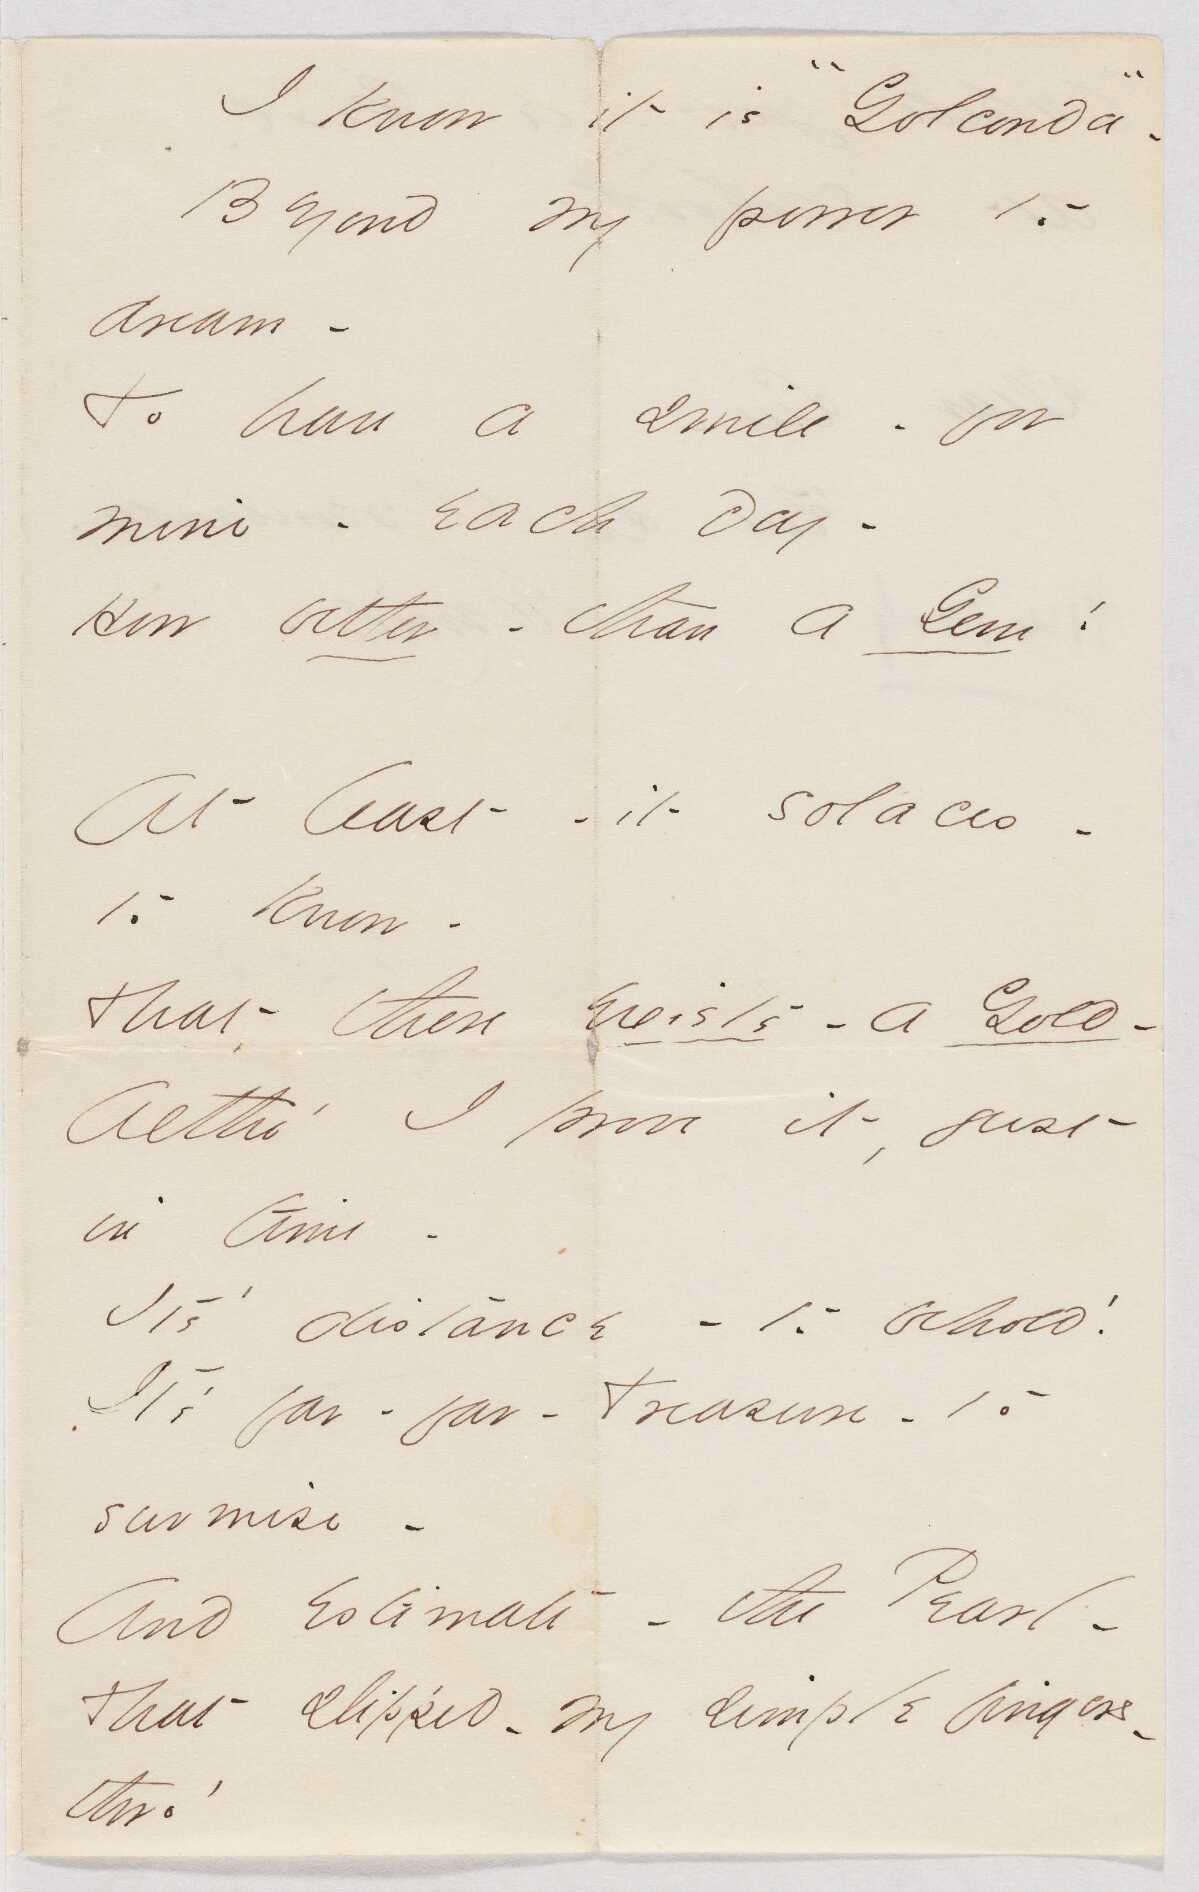 I know it is "Golconda" -
Beyond my power to
dream -
To have a smile - for
mine - each day -
How better - than a Gem!
At least - it solaces -
to know -
That there exists - a Gold -
Altho' I prove it, just
in time -
It's distance - to behold!
It's far - far - Treasure - to
surmise -
And estimate - the Pearl -
That slipped - my simple fingers -
thro'